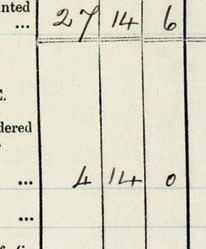 anted
... 27 14 6
E.
dered
... 4 14 0
...